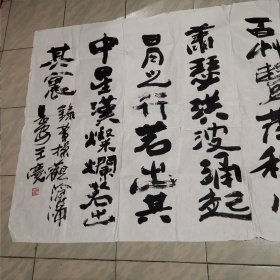 豐茂秋
蕭瑟洪波涌起
月之行若出其
中星漢燦爛若出
其裏
錄曹操觀滄海
王